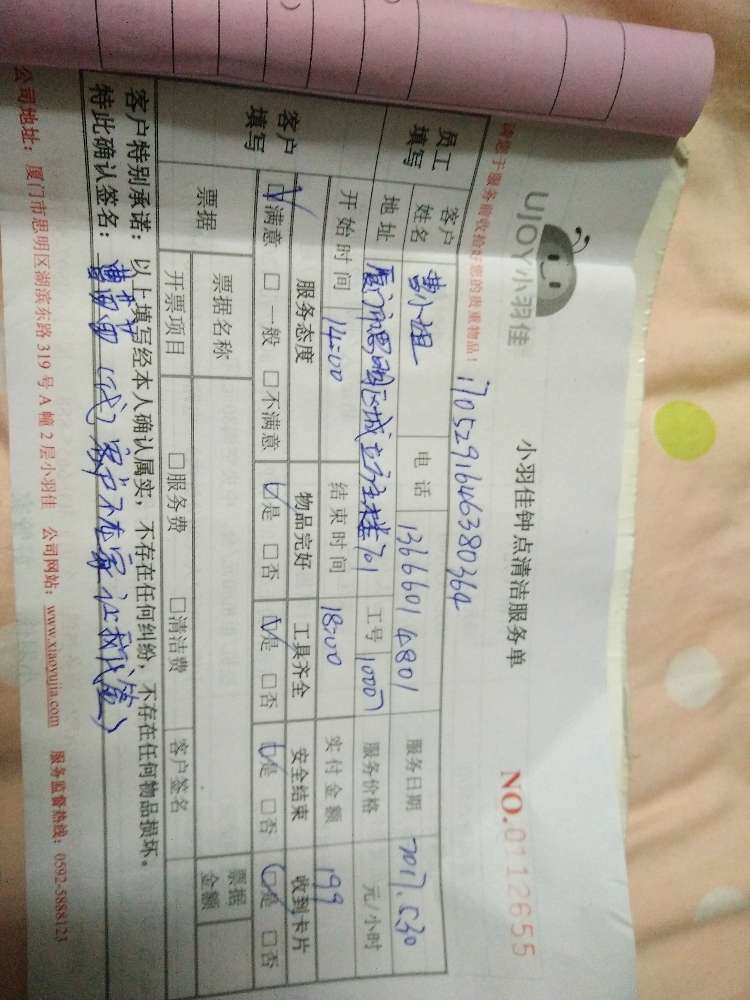 UJOY小羽佳
小羽佳钟点清洁服务单
NO.0112655
请您于服务前收拾好您的贵重物品:
1705291646380364
员工填写
客户姓名 黄小姐 电话 13666014801 服务日期 2017.5.30
地址 厦门市思明区城立方主楼701 工号 10007 服务价格 元/小时
开始时间 14:00 结束时间 18:00 实付金额 199
客户填写
服务态度 物品完好 工具齐全 安全结束 收到卡片
☑满意 □一般 □不满意 ☑是 □否 ☑是 □否 ☑是 □否 ☑是 □否
票据 票据名称 票据金额
开票项目 □服务费 □清洁费 客户签名
客户特别承诺:以上填写经本人确认属实,不存在任何纠纷,不存在任何物品损坏。
特此确认签名: (代)客户不在家让我代签)
公司地址:厦门市思明区湖滨东路319号A幢2层小羽佳 公司网站:www.xiaoyujia.com 服务监督热线:0592-5888123